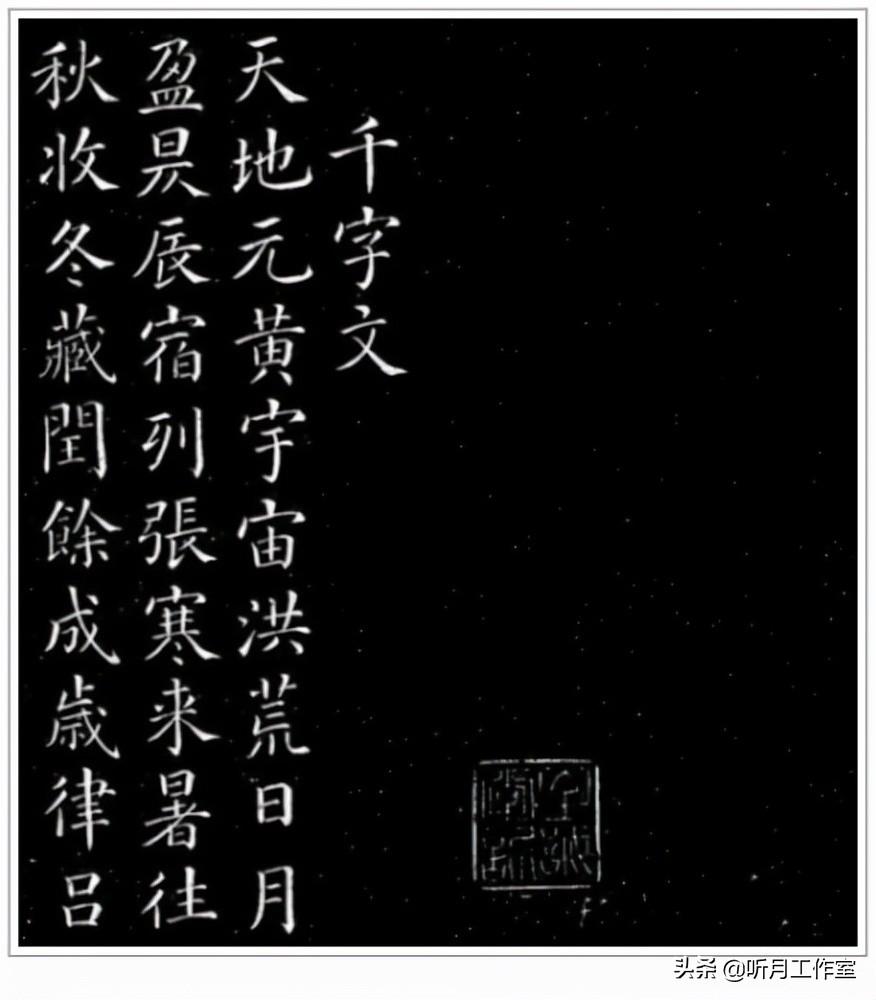 千字文
天地元黄宇宙洪荒日月
盈昃辰宿列張寒来暑往
秋收冬藏閏餘成歳律吕
头条 @听月工作室